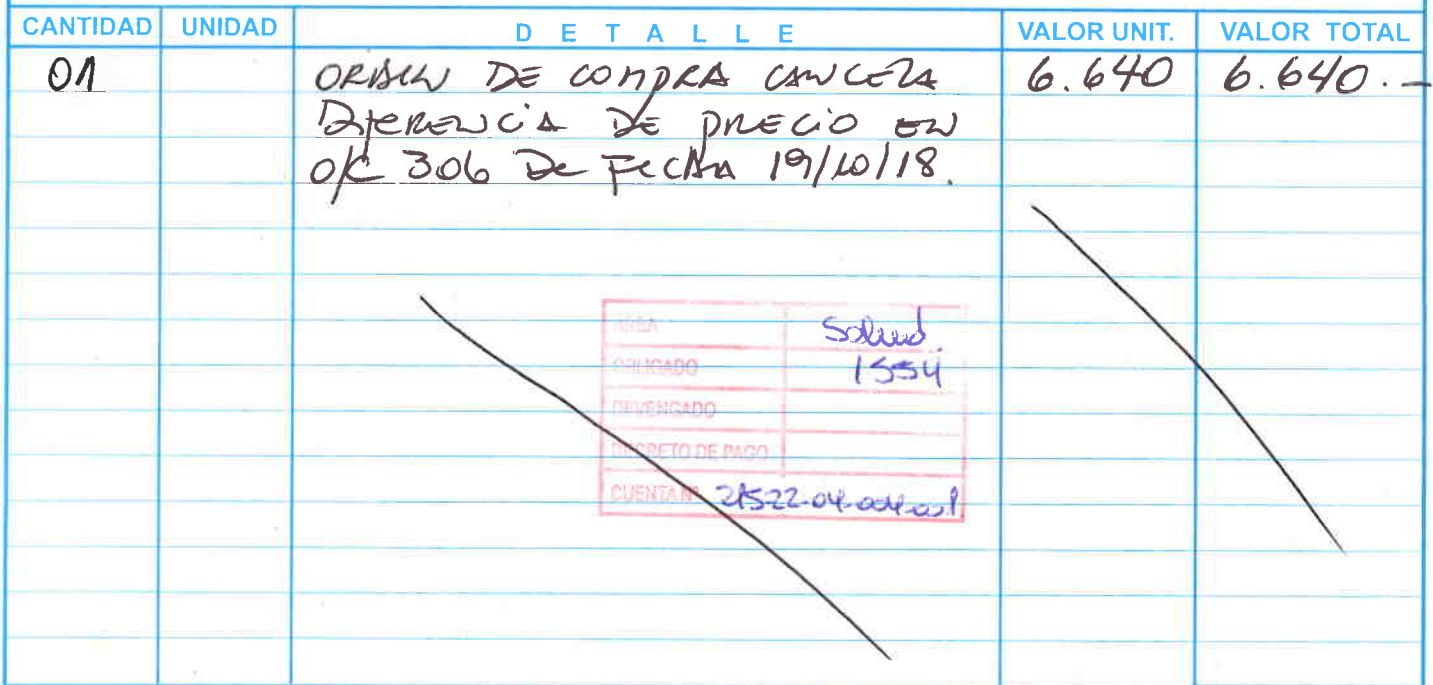 CANTIDAD UNIDAD DETALLE VALOR UNIT. VALOR TOTAL
01 ORDEN DE COMPRA CANCELA 6.640 6.640.-
DIFERENCIA DE PRECIO EN
O/C 306 De FECHA 19/10/18.
AREA Salud.
OBLIGADO 1554
DEVENGADO
DECRETO DE PAGO
CUENTA Nº 21522-04-004-001